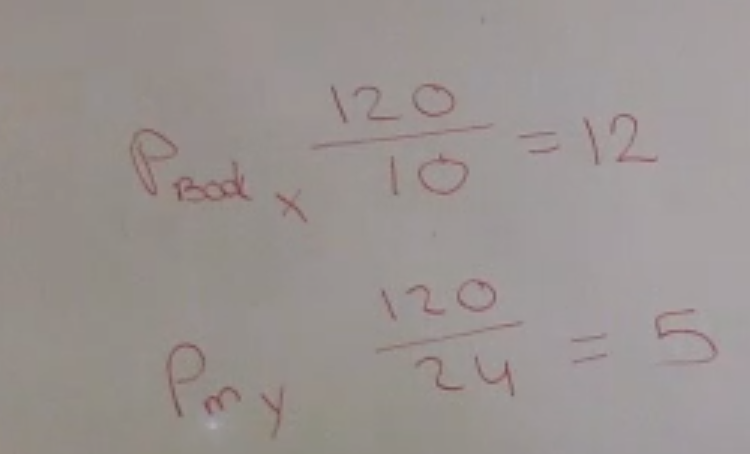 P Book x 120/10 = 12
P m y 120/24 = 5